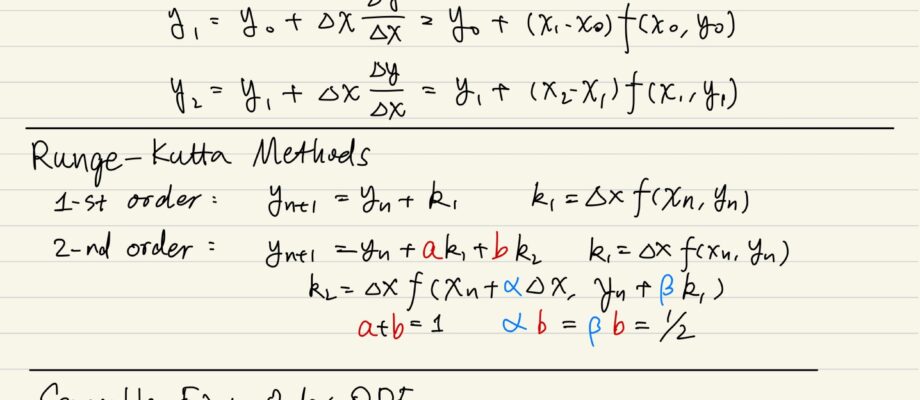 y₁ = y₀ + Δx Δy/Δx = y₀ + (x₁-x₀) f(x₀, y₀)
y₂ = y₁ + Δx Δy/Δx = y₁ + (x₂-x₁) f(x₁, y₁)
Runge-Kutta Methods
1-st order: yₙ₊₁ = yₙ + k₁ k₁ = Δx f(xₙ, yₙ)
2-nd order: yₙ₊₁ = yₙ + ak₁ + bk₂ k₁ = Δx f(xₙ, yₙ)
k₂ = Δx f(xₙ + αΔx, yₙ + βk₁)
a+b = 1 αb = βb = 1/2